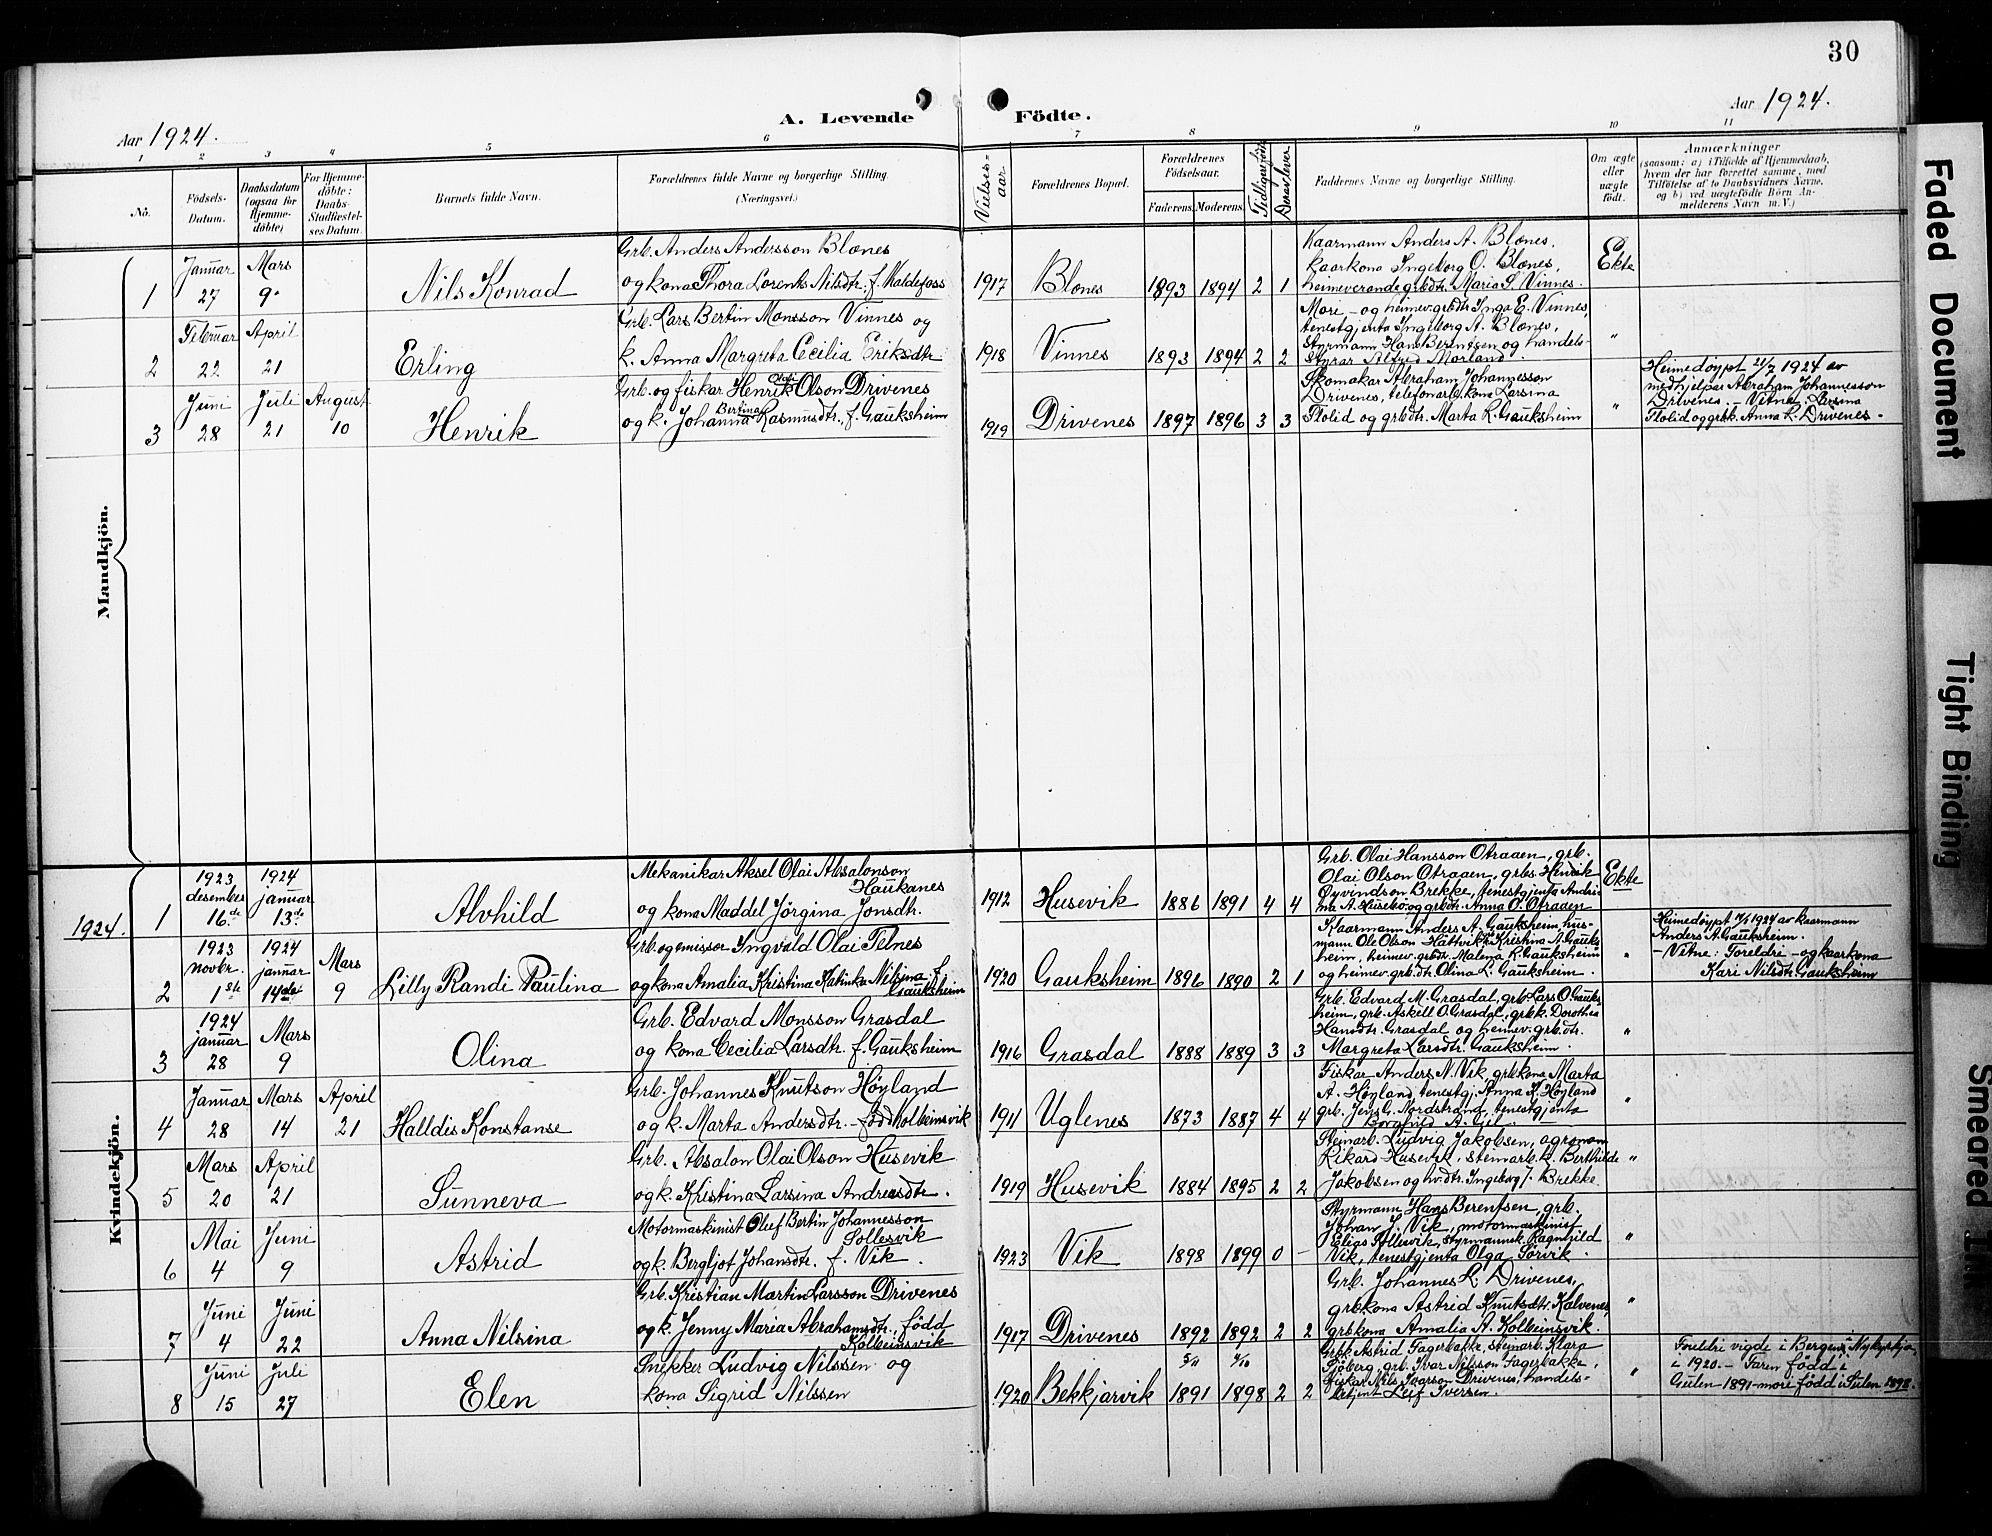 30
Aar 1924.
A. Levende Födte.
Aar 1924.
1 2 3 4 5 6 7 8 9 10 11
No.
Födsels-
Datum.
Daabsdatum
(ogsaa for
Hjemme-
döbte)
For Hjemme-
döbte:
Daabs-
Stadfæstel-
ses Datum.
Barnets fulde Navn.
Forældrenes fulde Navne og borgerlige Stilling.
(Næringsvei.)
Vielses-
aar
Forældrenes Bopæl.
Forældrenes
Födselsaar.
Faderens. Moderens.
Tidligere födte
Derav lever
Faddernes Navne og borgerlige Stilling.
Om ægte
eller
uægte
födt.
Anmærkninger
(saasom: a) i Tilfælde af Hjemmedaab,
hvem der har forrettet samme, med
Tilföielse af to Daabsvidners Navne,
og b) ved uægtefödte Börn An-
melderens Navn m. V.)
Mandkjön.
1
Januar
27
Mars
9.
Nils Konrad
Grb. Anders Andersson Blænes
og kona Thora Lorentse Nilsdtr. f. Haldefoss
1917 Blænes 1893 1894 2 1
Kaarmann Anders A. Blænes,
kaarkona Ingeborg O. Blænes,
heimeverande grbdtr. Maria S. Vinnes.
Ekte
2
Februar
22
April
21
Erling
Grb. Lars Bertin Monsson Vinnes og
k. Anna Margreta Cecilia Eriksdtr
1918 Vinnes 1893 1894 2 2
Mori - og heimev. grbdtr Inga E. Vinnes,
tenestgjenta Ingeborg A. Blænes,
styrmann Hans Berentsen og handels-
styrar Alfred Morland.
"
3
Juni
28
Juli
21
August
10
Henrik
Grb. og fiskar Henrik Olai Olson Drivenes
og k. Johanna Bertina Rasmusdtr. f. Gauksheim
1919 Drivenes 1897 1896 3 3
Skomakar Abraham Johannesson
Drivenes, telefonarb. kona Larsina
Stolid og grbdtr. Marta R. Gauksheim
"
Heimedøypt 21/7 1924 av
medhjelpar Abraham Johannesson
Drivenes. - Vitne: Larsina
Stolid og grbk. Anna K. Drivenes.
Kvindekjön.
1924.
1
1923
desember
16de
1924
januar
13de
Alvhild
Mekanikar Aksel Olai Absalonson
Haukanes
og kona Maddel Jörgina Jonsdtr.
1912 Husevik 1886 1891 4 4
Grb. Olai Hansson Otraaen, grb.
Olai Olson Otraaen, grbs. Henrik
Øyvindson Brekke, tenestgjenta Andri-
na A. Husebø og grbdtr. Anna O. Otraaen
Ekte
2
1923
novbr.
1ste
1924
januar
14de
Mars
9
Lilly Randi Paulina
Grb. og emissær Ingvald Olai Telnes
og kona Amalia Kristina Katinka Nilsina f.
Gauksheim
1920 Gauksheim 1896 1890 2 1
Kaarmann Anders A. Gauksheim, hus-
mann Ole Olson Hattvik, Kristina A. Gauks-
heim, heimev. grbdtr. Malena R. Gauksheim
og heimev. grbdtr. Olina L. Gauksheim.
"
Heimedøypt 14/1 1924 av kaarmann
Anders A. Gauksheim.
- Vitne: Foreldre - og kaarkona
Kari Nilsdtr. Gauksheim
3
1924
januar
28
Mars
9
Olina
Grb. Edvard Monsson Grasdal
og kona Cecilia Larsdtr. f. Gauksheim
1916 Grasdal 1888 1889 3 3
Grb. Edvard M. Grasdal, grb. Lars O. Gauks-
heim, grb. Askill O. Grasdal, grbk. Dorothea
Hansdtr. Grasdal og heimev. grb.dtr.
Margreta Larsdtr. Gauksheim.
"
4
Januar
28
Mars
14
April
21
Halldis Konstanse
Grb. Johannes Knutson Høyland
og k. Marta Andersdtr. - född Kolbeinsvik
1911 Uglenes 1873 1887 4 4
Fiskar Anders N. Vik, grbkona Marta
A. Høyland, tenestgj. Anna K. Høyland
grb. Jens G. Nordstrand, tenestgjenta
Borghild A. Gil.
"
5
Mars
20
April
21
Sunneva
Grb. Absalon Olai Olson Husevik
og k. Kristina Larsina Andreasdtr.
1919 Husevik 1884 1895 2 2
Steinarb. Ludvig Jakobsen, agronom
Rikard Husevik, steinarb. k. Berthilde
Jakobsen og hv.dtr. Ingeborg J. Brekke.
"
6
Mai
4
Juni
9
Astrid
Motormaskinist Oluf Bertin Johannesson
Sollesvik
og k. Bergljot Johansdtr. f. Vik.
1923 Vik 1898 1899 0 -
Styrmann Hans Berentsen, grb.
Johan J. Vik, motormaskinist
Elias Sollesvik, styrmannsk. Ragnhild
Vik, tenestgjenta Olga Sørvik.
"
7
Juni
4
Juni
22
Anna Nilsina
Grb. Kristian Martin Larsson Drivenes
og k. Jenny Maria Abrahamsdtr., född
Kolbeinsvik
1917 Drivenes 1892 1892 2 2
Grb. Johannes L. Drivenes,
grbkona Astrid Knutsdtr. Kalvenes,
grbkona Amalia A. Kolbeinsvik.
"
8
Juni
15
Juli
27
Elen
Snekker Ludvig Nilssen og
kona Sigrid Nilssen
1920 Bekkjarvik 1891 1898 2 2
Grbk. Astrid Fagerbakke, steinarb. Klara
Sjöberg, grb. Ivar Nilsson Fagerbakke,
fiskar Nils Ivarson Drivenes, handels-
betjent Leif Iversen.
"
Foreldri vigde i Bergens Nykyrkja
i 1920. - Faren född i
Gulen 1891 - mori född i Gulen 1898.
Faded Document
Tight Binding
Smeared Ink